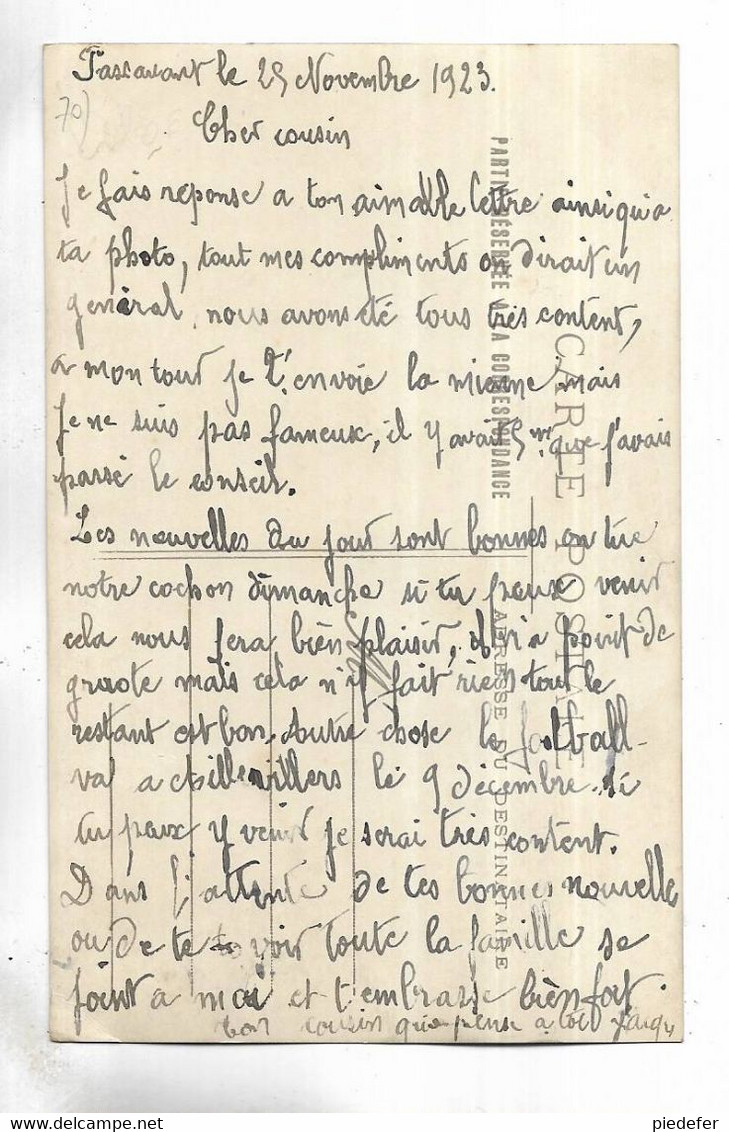 Passavant le 25 Novembre 1923.
70)
Cher cousin
Je fais réponse a ton aimable lettre ainsi qu'a
ta photo, tout mes compliments on dirait un
général, nous avons été tous très content,
a mon tour je t'envoie la mienne mais
Je ne suis pas fameux, il y avait 5 m. que j'avais
passé le conseil.
Les nouvelles du jour sont bonnes on tue
notre cochon dimanche si tu peux venir
cela nous fera bien plaisir, il n'i a point de
gnote mais cela n'if fait rien tout le
restant est bon. Autre chose le football
va a Aillevillers le 9 décembre. si
tu peux y venir je serai très content.
Dans l'attente de tes bonnes nouvelle
ou de te voir toute la famille se
joint a moi et t'embrasse bien fort.
ton cousin qui pense a toi
CARTE POSTALE
PARTIE RÉSERVÉE A LA CORRESPONDANCE
ADRESSE DU DESTINATAIRE
piedefer